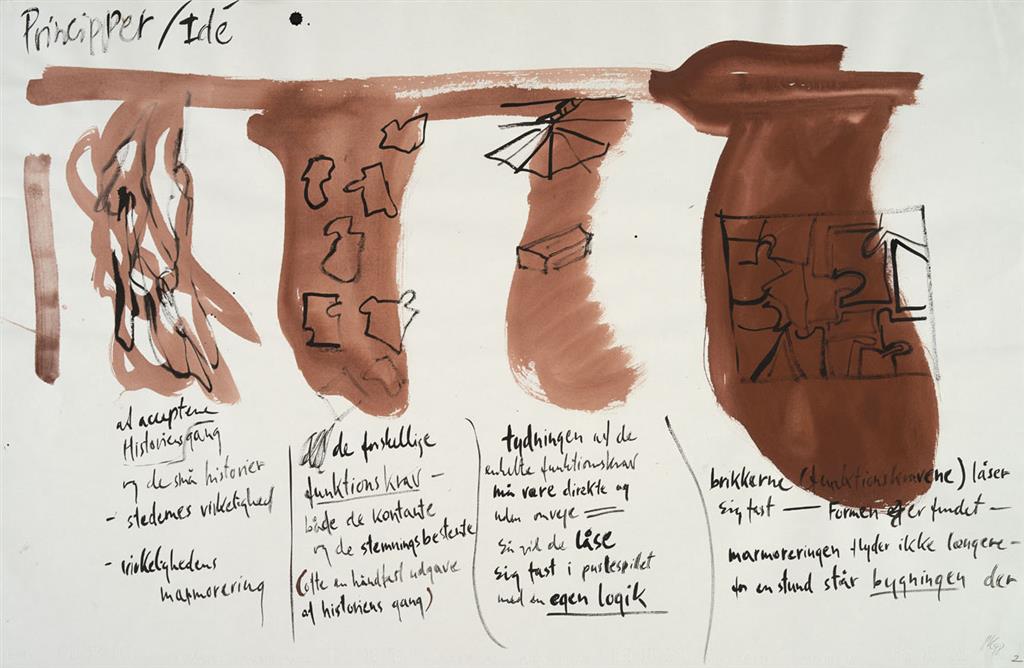 Principper/Idé
at acceptere
Historiens gang
og de små historier
- stedernes virkelighed
- virkelighedens
marmorering
de forskellige
funktionskrav -
både de kontante
og de stemningsbestemte
(ofte en håndfast udgave
af historiens gang)
tydningen af de
enkelte funktionskrav
må være direkte og
uden omveje
Så vil de låse
sig fast i puslespillet
med en egen logik
brikkerne (funktionskravene) låser
sig fast — Formen er fundet -
marmoreringen flyder ikke længere -
for en stund står bygningen der
2